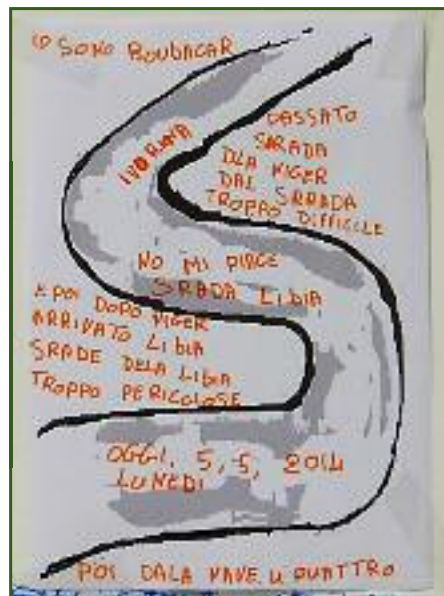 IO SONO BOUBACAR
IVORIANA
PASSATO
SARADA
DLA NIGER
DAL SRRADA
TROPPO DIFFICLLE
NO MI PIACE
SRADA LIBIA
E POI DOPO NIGER
ARRIVATO LIBIA
SRADE DELA LIBIA
TROPPO PERICOLOSE
OGGI, 5, 5, 2014
LUNEDI
POI DALA NAVE U QUATTRO